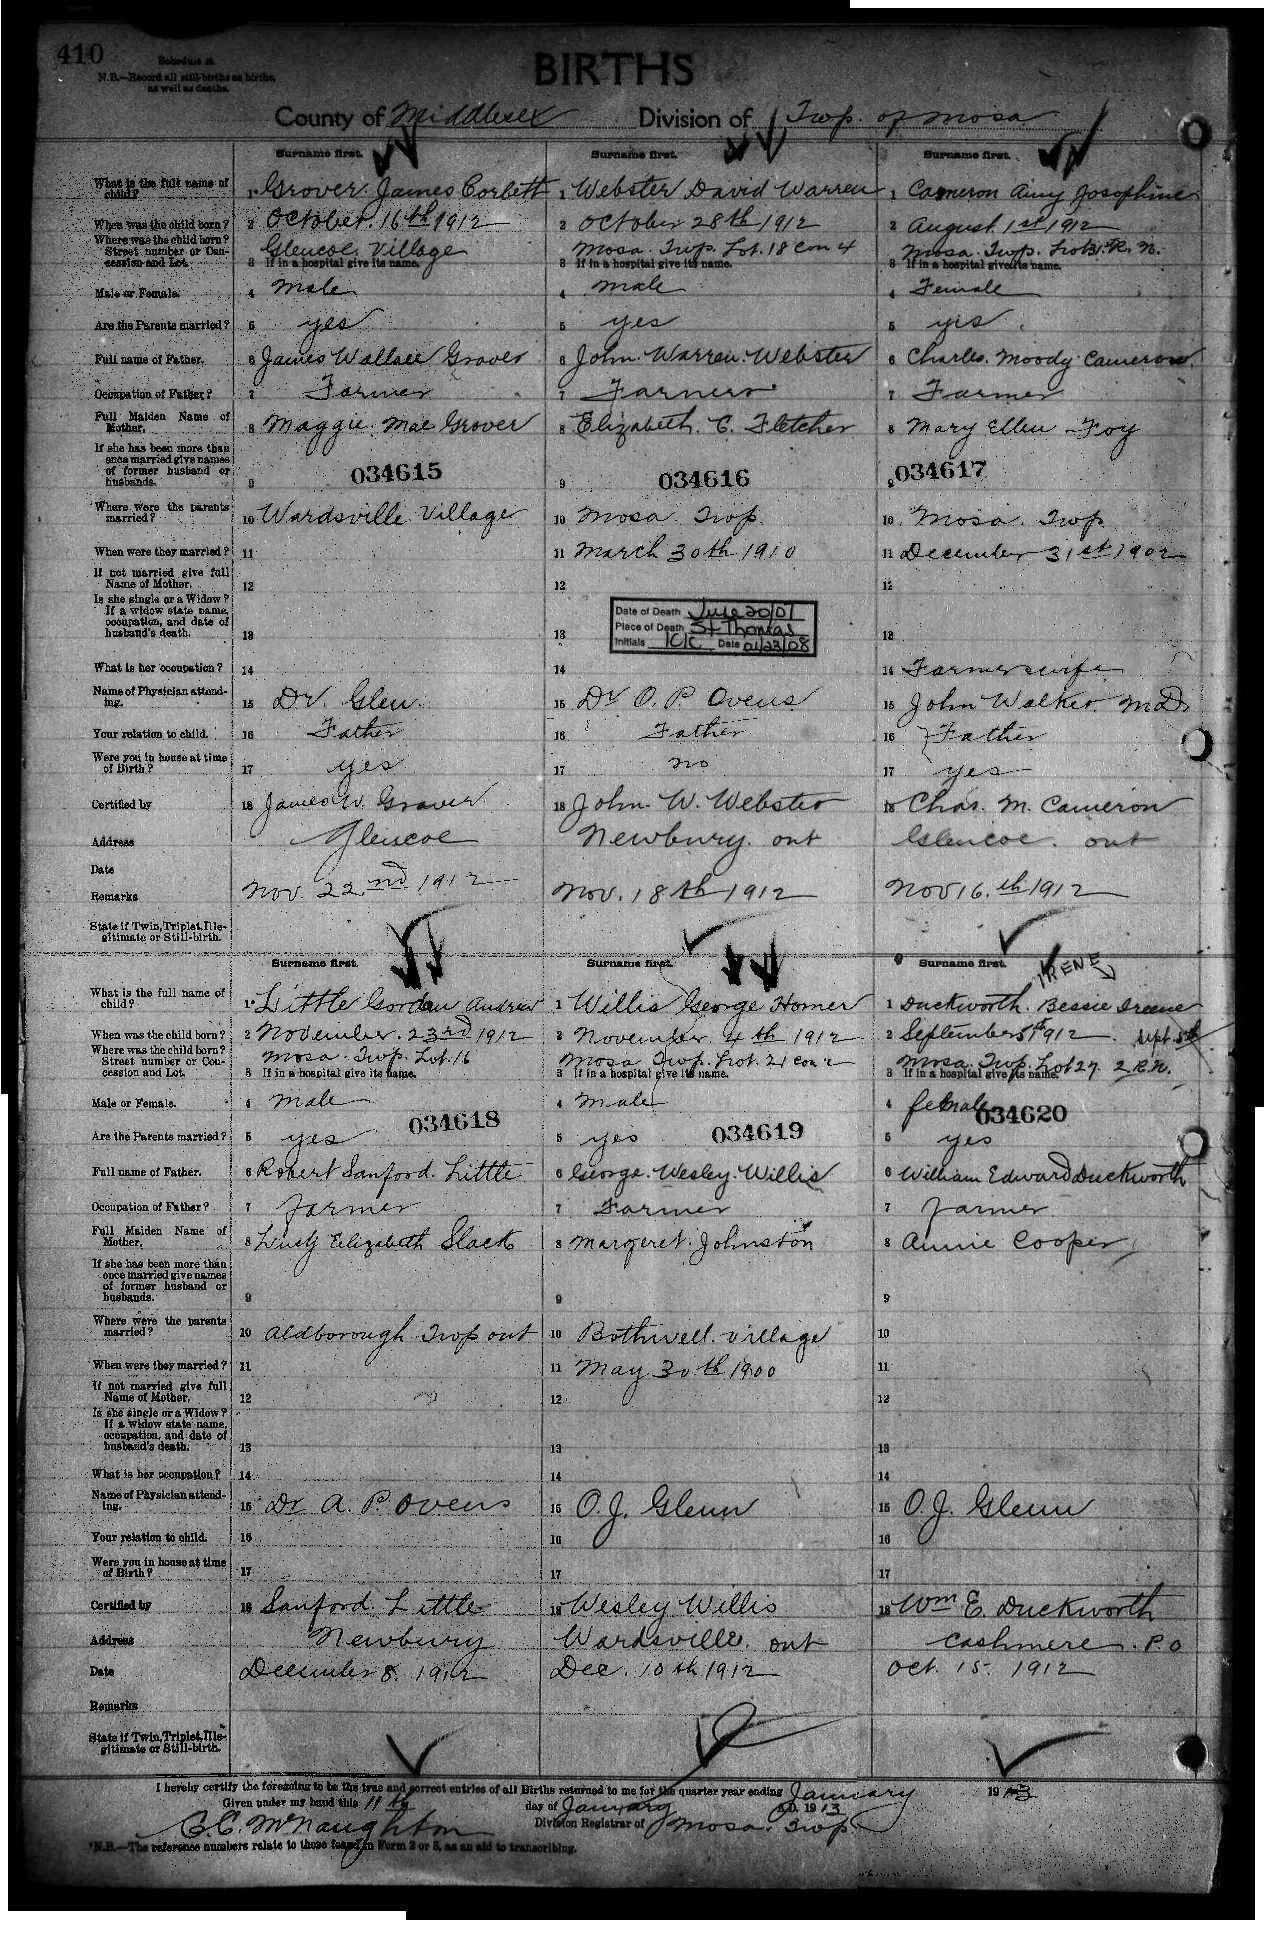 410
Schedule A.
N.B.—Record all still-births as births,
as well as deaths.
BIRTHS
County of Middlesex Division of Twp. of Mosa
Surname first. Surname first. Surname first.
What is the full name of child? 1 Grover James Corbett 1 Webster David Warren 1 Cameron Amy Josophine
When was the child born? 2 October. 16th 1912 2 October 28th 1912 2 August 1st 1912
Where was the child born? Street number or Concession and Lot. 3 Glencoe Village 3 Mosa Twp. Lot. 18 Con 4 3 Mosa. Twp. Lot 3. R. N.
If in a hospital give its name. If in a hospital give its name. If in a hospital give its name.
Male or Female. 4 male 4 male 4 Female
Are the Parents married? 5 yes 5 yes 5 yes
Full name of Father. 6 James Wallace Grover 6 John. Warren. Webster 6 Charles. Moody Cameron.
Occupation of Father? 7 Farmer 7 Farmer 7 Farmer
Full Maiden Name of Mother. 8 Maggie Mae Grover 8 Elizabeth. C. Fletcher 8 Mary Ellen Foy
If she has been more than once married give names of former husband or husbands. 9 034615 9 034616 9 034617
Where were the parents married? 10 Wardsville Village 10 Mosa. Twp. 10 Mosa. Twp
When were they married? 11 11 March 30th 1910 11 December 31st 1902
If not married give full Name of Mother. 12 12 12
Is she single or a Widow? If a widow state name, occupation, and date of husband's death. 13 13 13
Date of Death June 20/01
Place of Death St Thomas
Initials KC Date 01/23/08
What is her occupation? 14 14 14 Farmers wife
Name of Physician attending. 15 Dr. Glen. 15 Dr O. P. Ovens 15 John Walker M.D.
Your relation to child. 16 Father 16 Father 16 Father
Were you in house at time of Birth? 17 yes 17 no 17 yes
Certified by 18 James W. Grover 18 John. W. Webster 18 Chas. M. Cameron
Address Glencoe Newbury. ont Glencoe. ont
Date
Remarks Nov. 22nd 1912 Nov. 18th 1912 Nov 16.th 1912
State if Twin, Triplet, Illegitimate or Still-birth.
Surname first. Surname first. Surname first. IRENE
What is the full name of child? 1 Little Gordon Andrew 1 Willis George Homer 1 Duckworth. Bessie Ireene
When was the child born? 2 November. 23rd 1912 2 November 4th 1912 2 September 5th 1912. Sept 5th
Where was the child born? Street number or Concession and Lot. 3 Mosa. Twp. Lot. 16 3 Mosa Twp. Lot. 21 Con 2 3 Mosa. Twp. Lot 27 2 R.N.
If in a hospital give its name. If in a hospital give its name. If in a hospital give its name.
Male or Female. 4 male 4 male 4 female
034618 034619 034620
Are the Parents married? 5 yes 5 yes 5 yes
Full name of Father. 6 Robert Sanford. Little 6 George. Wesley. Willis 6 William Edward Duckworth
Occupation of Father? 7 farmer 7 Farmer 7 farmer
Full Maiden Name of Mother. 8 Elizabeth Slack 8 Margeret. Johnston 8 Annie Cooper
If she has been more than once married give names of former husband or husbands. 9 9 9
Where were the parents married? 10 Aldborough Twp ont 10 Bothwell. Village 10
When were they married? 11 11 May 30th 1900 11
If not married give full Name of Mother. 12 12 12
Is she single or a Widow? If a widow state name, occupation, and date of husband's death. 13 13 13
What is her occupation? 14 14 14
Name of Physician attending. 15 Dr A. P. Ovens 15 O. J. Glenn 15 O. J. Glenn
Your relation to child. 16 16 16
Were you in house at time of Birth? 17 17 17
Certified by 18 Sanford Little 18 Wesley Willis 18 Wm E. Duckworth
Address Newbury Wardsville. ont Cashmere. P.O
Date December 8. 1912 Dec. 10th 1912 Oct. 15. 1912
Remarks
State if Twin, Triplet, Illegitimate or Still-birth.
I hereby certify the foregoing to be the true and correct entries of all Births returned to me for the quarter year ending January 1913
Given under my hand this 11th day of January A.D. 1913
C.C. McNaughton Division Registrar of Mosa. Twp
*N.B.—The reference numbers relate to those found in Form 2 or 3, as an aid to transcribing.